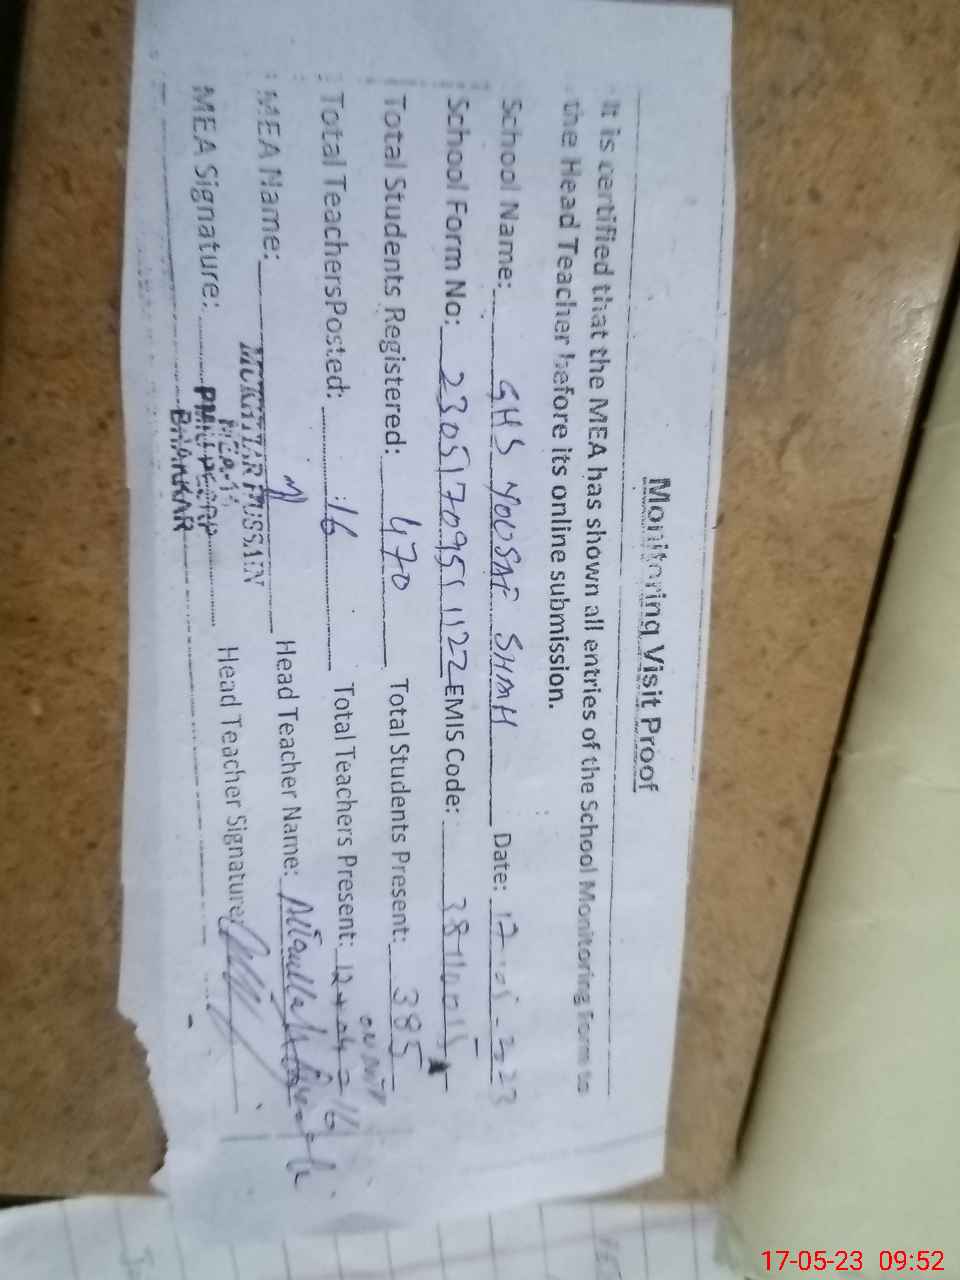 Monitoring Visit Proof
It is certified that the MEA has shown all entries of the School Monitoring Form to
the Head Teacher before its online submission.
School Name: GHS YOUSAF SHAH Date: 17-05-2023
School Form No: 2305170951122 EMIS Code:
Total Students Registered: 470 Total Students Present: 385
on duty
Total TeachersPosted: 16 Total Teachers Present: 12 + 04 = 16
MEA Name: MUKHTAR HUSSAIN Head Teacher Name:
MEA Signature: Head Teacher Signature:
BHAKKAR
17-05-23 09:52